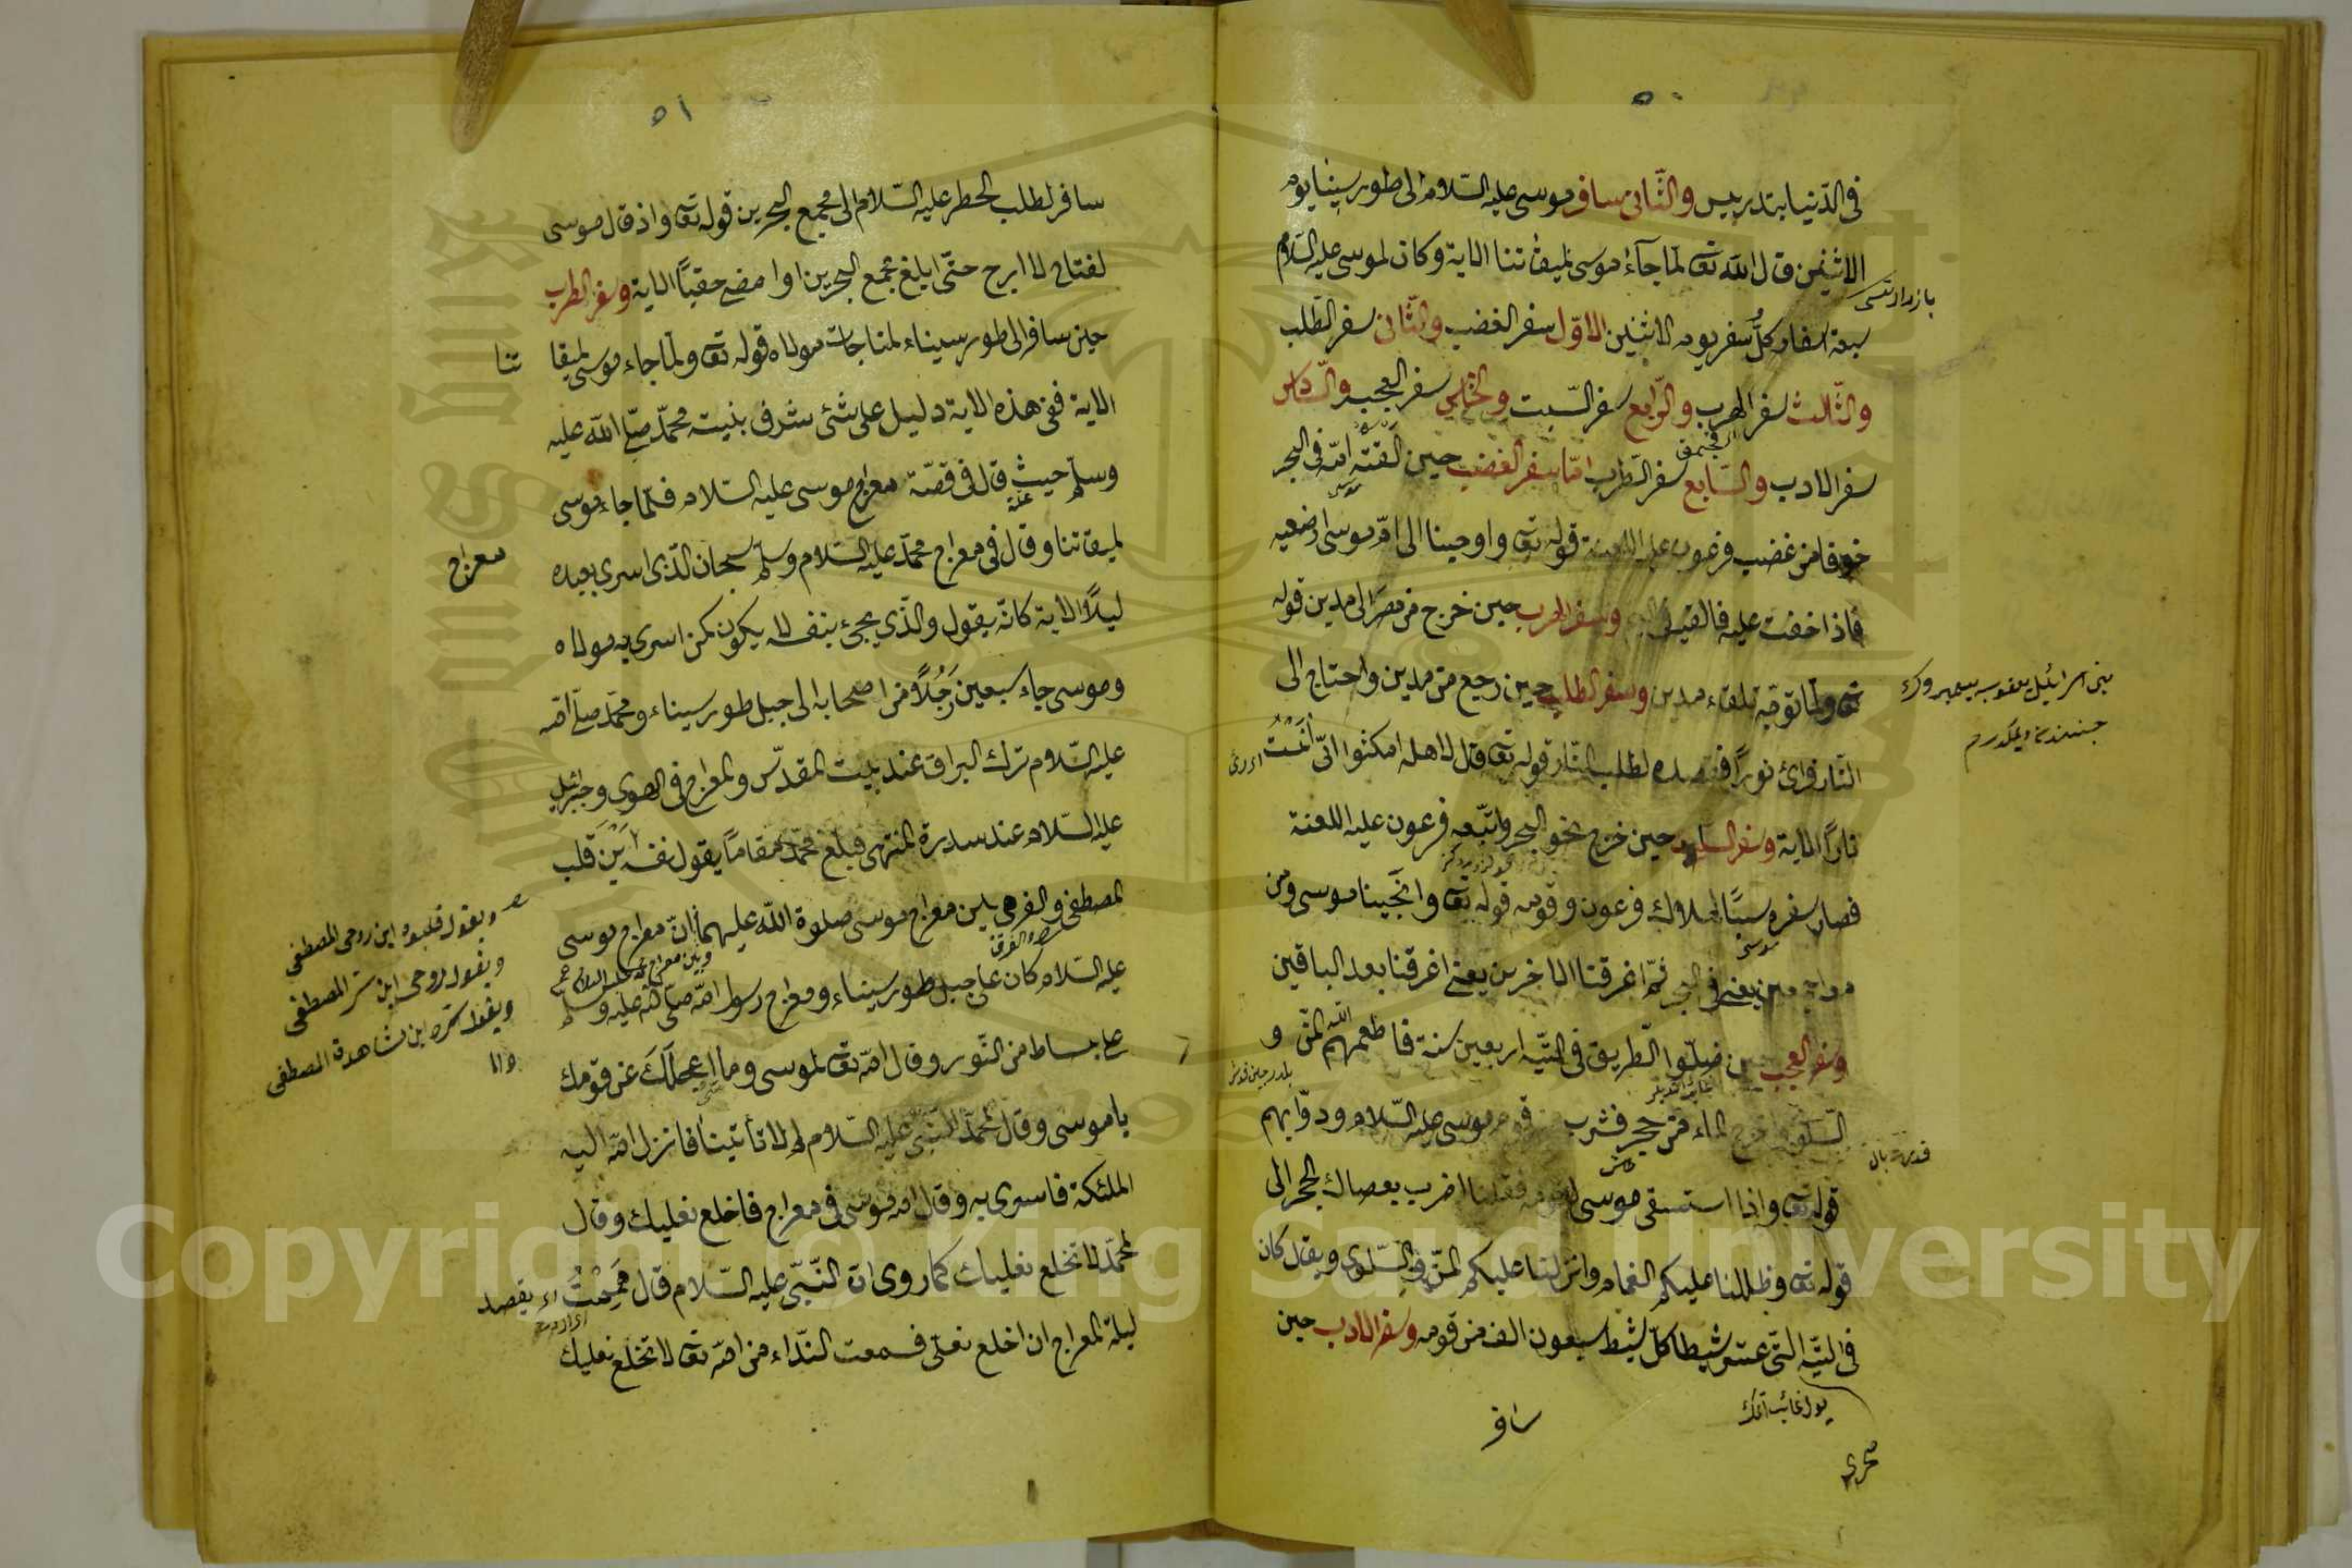 ٥٠
فى الدّنيا بتدريس والثّانى سافر موسى عليه السّلام الى طور سينا يوم
الاثنين قال اللّه تعا لمّا جآء موسى لميقاتنا الاية وكان لموسى عليه السّلام
سبعة اسفار كلّ سفر يوم الاثنين الاوّل سفر الغضب والثّانى سفر الطّلب
والثّالث سفر الهرب والرّابع سفر السّبت والخامس سفر العجب والسّادس
سفر الادب والسّابع سفر الطّرب امّا سفر الغضب حين القته امّه فى البحر
خوفا من غضب فرعون عليه اللعنة قوله تعا واوحينا الى امّ موسى ارضعيه
فاذا خفت عليه فالقيه فى وسفر الهرب حين خرج من مصر الى مدين قوله
تعا ولمّا توجّه تلقاء مدين وسفر الطلب حين رجع من مدين واحتاج الى
النّار فرائ نورًا فقصده لطلب النّار قوله تعا قال لاهله امكثوا انّى اَنَسْتُ
نارًا الاية وسفر حين خرج نحو البحر واتّبعه فرعون عليه اللعنة
فصار سفره سببًا لهلاك فرعون وقومه قوله تعا وانجينا موسى ومن
معه اجمعين يعنى فى البحر ثمّ اغرقنا الاخرين يعنى اغرقنا بعد الباقين
وسفر العجب حين ضلّوا الطّريق فى التّيه اربعين سنة فاطعمهم اللّه المنّ و
السّلوى الماء من حجر فشرب قوم موسى عليه السّلام ودوّابهم
قوله تعا واذا استسقى موسى لقومه فقلنا اضرب بعصاك الحجر الى
قوله تعا وظللنا عليكم الغمام وانزلنا عليكم المنّ والسّلوى ويقال كان
فى التّيه اثنى عشر شبطا كلّ شبط سبعون الف من قومه وسفر الادب حين
سافر
٥١
سافر لطلب الخطر عليه السّلام الى مجمع البحرين قوله تعا واذ قال موسى
لفتاه لا ابرح حتّى ابلغ مجمع البحرين او امضى حقبًا الاية وسفر الطرب
حين سافر الى طور سيناء لمناجات مولاه قوله تعا ولمّا جاء موسى لميقا تنا
الاية ففى هذه الاية دليل على شئ شرف بنيت محمّد صلّى اللّه عليه
وسلّم حيث قال فى قصّة معراج موسى عليه السّلام فلمّا جاء موسى
لميقاتنا وقال فى معراج محمّد عليه السّلام وسلّم سبحان الّذى اسرى بعبده
معراج
ليلًا الاية كانّه يقول والّذى يجئ بنفسه لا يكون كمن اسرى به مولاه
وموسى جاء سبعين رَجُلًا من اصحابه الى جبل طور سيناء ومحمّد صلّى اللّه
عليه السّلام ترك البراق عند بيت المقدّس والمعراج فى الهوى وجبرائيل
عليه السّلام عند سدرة المنتهى فبلغ محمّد مقامًا يقول نفسه اَيْنَ قلب
المصطفى والفرق بين معراج موسى صلوة اللّه عليهما انّ معراج موسى
ويقول قلبه اين روحى المصطفى
ويقول روحى اين سرّ المصطفى
ويقول سرّه اين مشاهدة المصطفى
عليه السّلام كان على جبل طور سيناء ومعراج رسول اللّه صلّى اللّه عليه وسلّم
على بساط من النّور وقال اللّه تعا لموسى وما اعجلك عن قومك
يا موسى وقال محمّد النّبى عليه السّلام لم لا تأتينا فانزل اللّه اليه
الملئكة فاسرى به وقال اللّه موسى فى معراج فاخلع نعليك وقال
لمحمّد لا تخلع نعليك كما روى ان النّبىّ عليه السّلام قال هَمَمْتُ اى يقصد
ليلة المعراج ان اخلع نعلى فسمعت النّداء من اللّه تعا لا تخلع نعليك
Copyright © King Saud University
1957